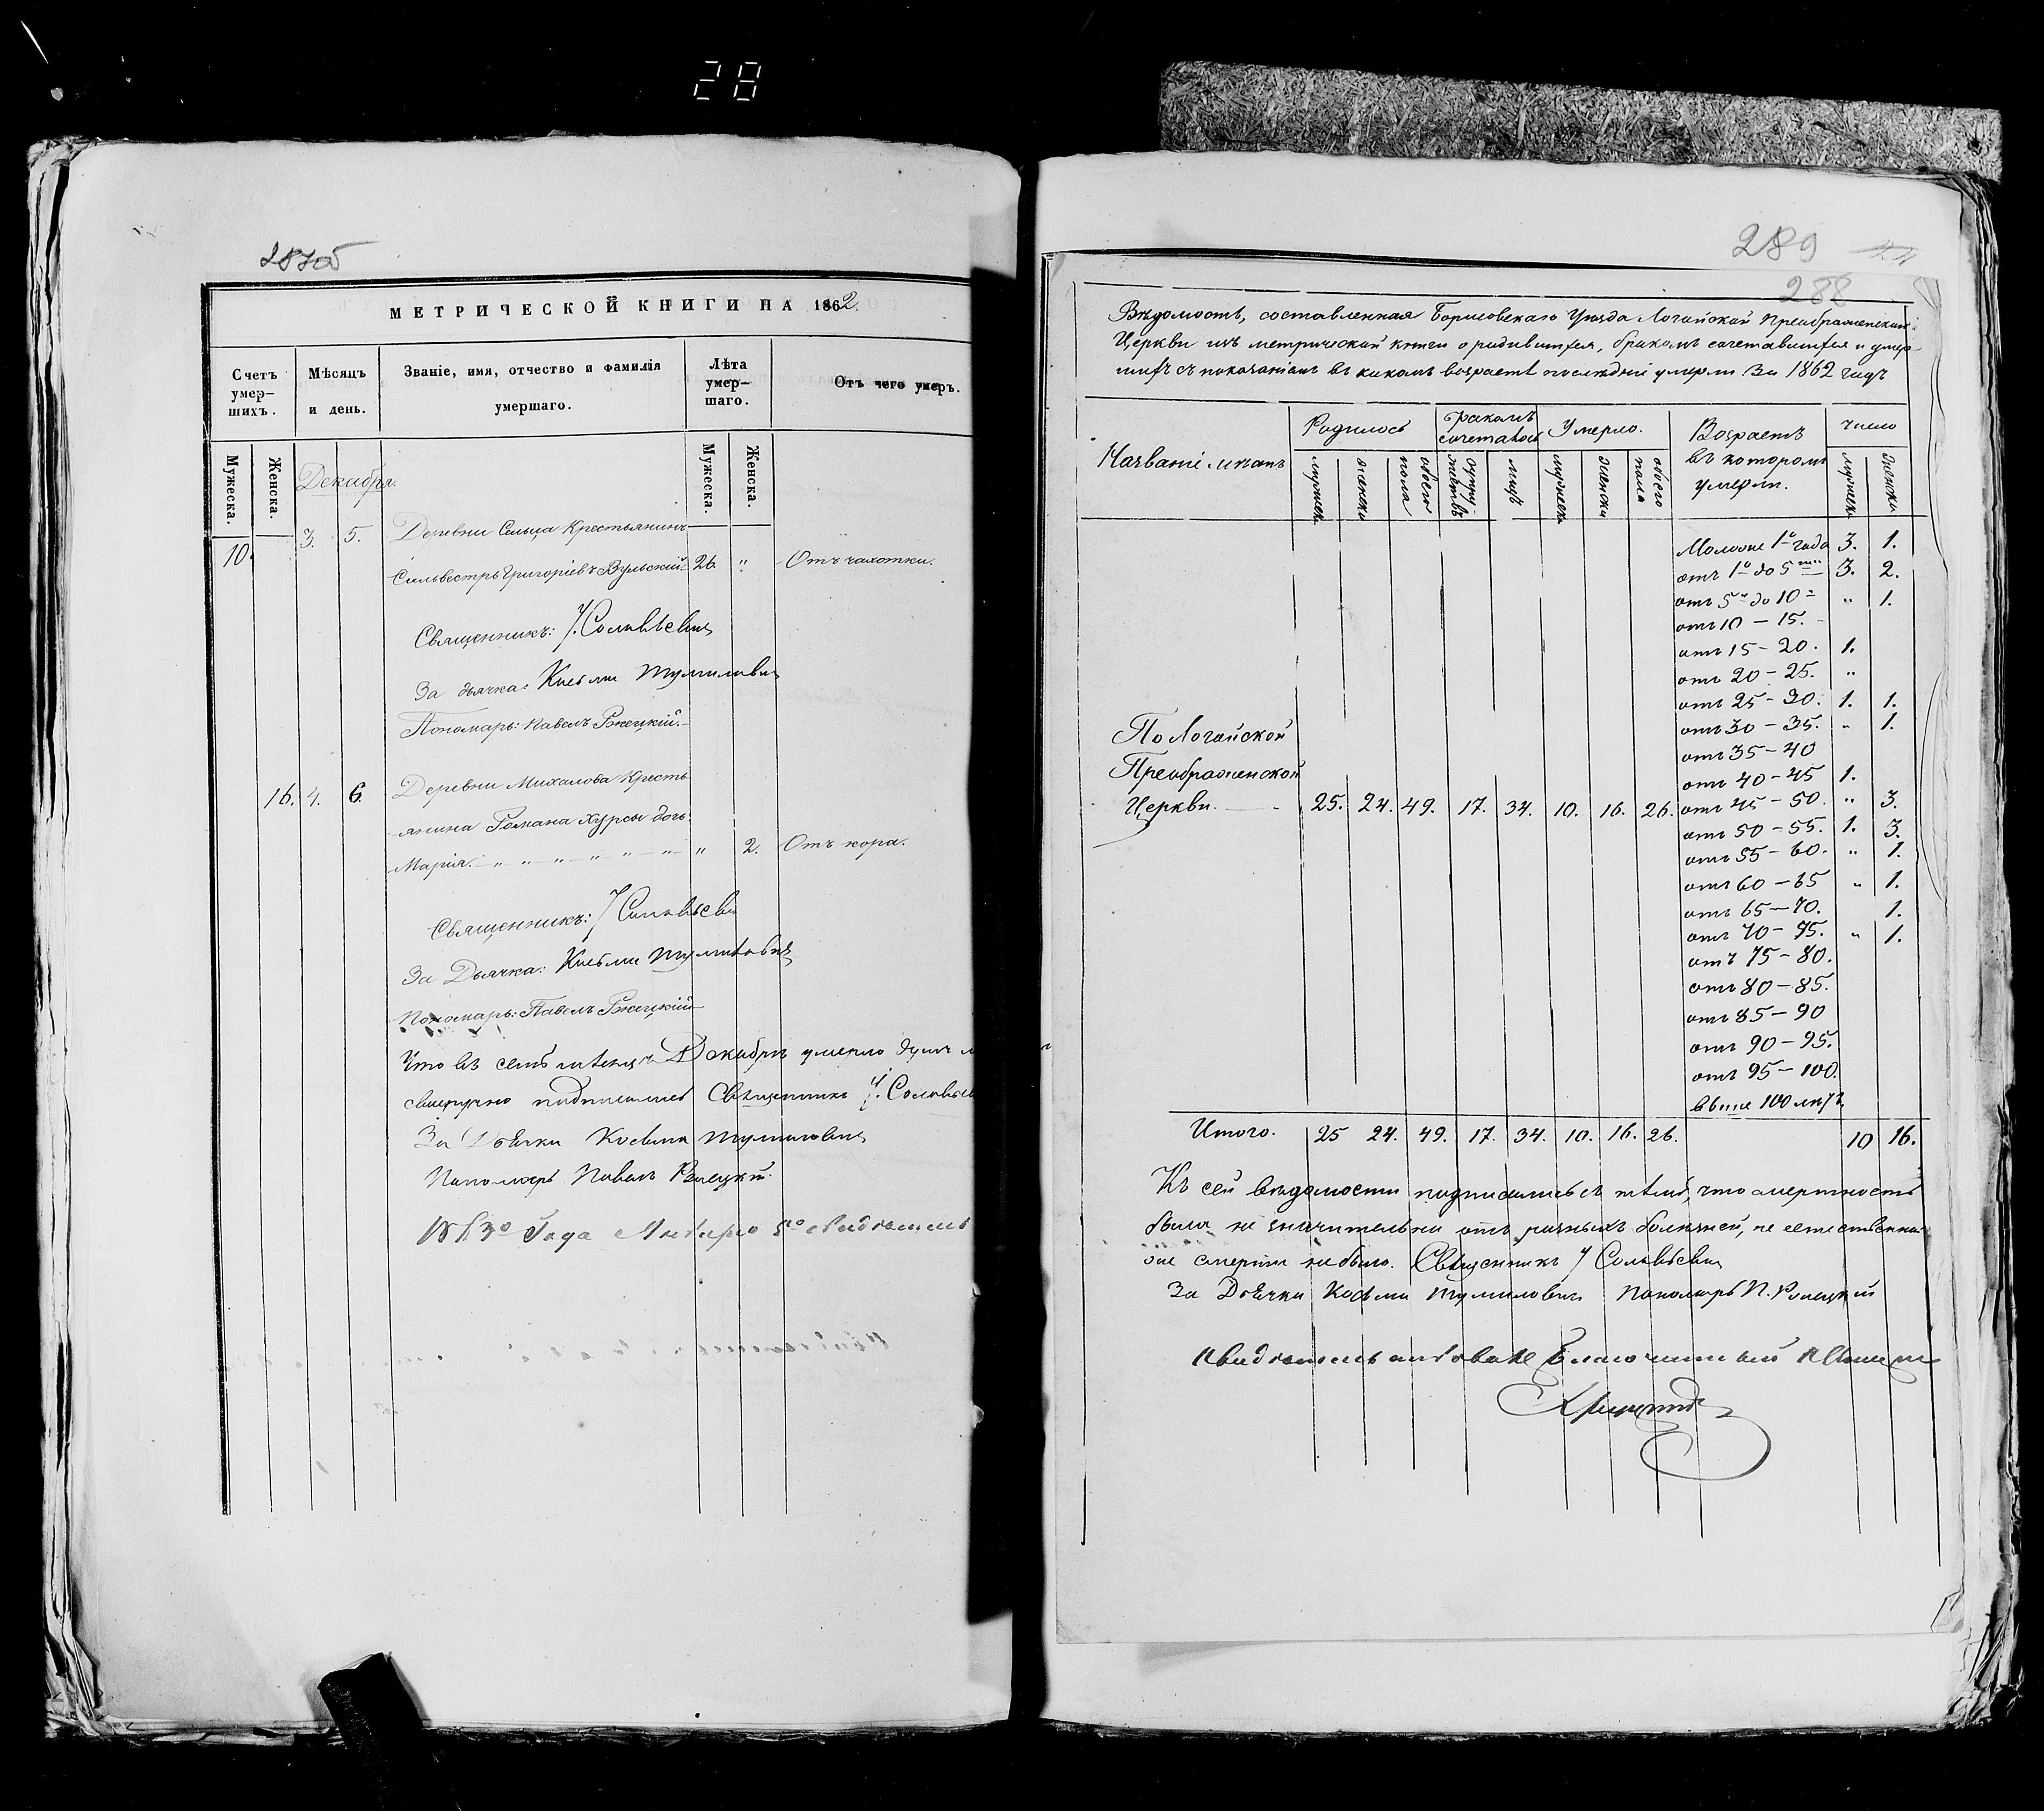 28
287об
МЕТРИЧЕСКОЙ КНИГИ НА 1862.
Счетъ умер-шихъ.
Мѣсяцъ и день.
Званіе, имя, отчество и фамилія умершаго.
Лѣта умер-шаго.
Отъ чего умеръ.
Мужеска.
Женска.
Мужеска.
Женска.
Декабрь.
3. 5. Деревни Сельца Крестьянинъ
10. Сильвестръ Григоріевъ Вульскій 26. " Отъ чахотки.
Священникъ: І. Соловьевич
За дьячка: Косьма Тумилович
Пономарь: Павелъ Ржецкій.
16. 4. 6. Деревни Михалова Кресть
янина Романа Хурсы дочь
Марія. " " " " " " " 2. Отъ кора.
Священникъ: І Соловьеви
За Дьячка: Косьма Тумилович
Пономарь: Павелъ Ржецкій
Что въ семъ месяцѣ Декабрѣ умерло душъ
Священникъ І. Соловье
За Дьячка Косьма Тумилович
Пономарь Павелъ Ржецкій.
1863го Года Января 5го
289
288
Вѣдомость, составленная Борисовскаго Уѣзда Логойской Преображенской
Церкви изъ метрической книги о родившихся, бракомъ сочетавшихся и умер
шихъ съ показаніемъ въ какомъ возрастѣ послѣдніе умерли. За 1862 годъ
Названіе мѣстъ
Родилось
Бракомъ сочеталось
Умерло.
Возрастъ въ которомъ умерли.
Число
мужеск.
женска
обоего пола
супружествъ
лицъ
мужеск.
женска
обоего пола
мужеска
женска
Моложе 1го года 3. 1.
отъ 1го до 5ти 3. 2.
отъ 5 до 10 " 1.
отъ 10 - 15. -
отъ 15 - 20. 1.
отъ 20 - 25. "
отъ 25 - 30. 1. 1.
отъ 30 - 35. " 1.
отъ 35 - 40
отъ 40 - 45 1.
По Логойской
Преображенской
Церкви. 25. 24. 49. 17. 34. 10. 16. 26. отъ 45 - 50. " 3.
отъ 50 - 55. 1. 3.
отъ 55 - 60. " 1.
отъ 60 - 65 " 1.
отъ 65 - 70. 1.
отъ 70 - 75. " 1.
отъ 75 - 80.
отъ 80 - 85.
отъ 85 - 90
отъ 90 - 95.
отъ 95 - 100.
выше 100 лѣтъ.
Итого. 25 24. 49. 17. 34. 10. 16. 26. 10 16.
Къ сей вѣдомости подписались съ тѣмъ, что смертность
была не значительна отъ разныхъ болѣзней, не естественной
же смерти не было. Священникъ І Соловьевич
За Дьячка Косьма Тумилович Пономарь П. Ржецкій
Благочинный